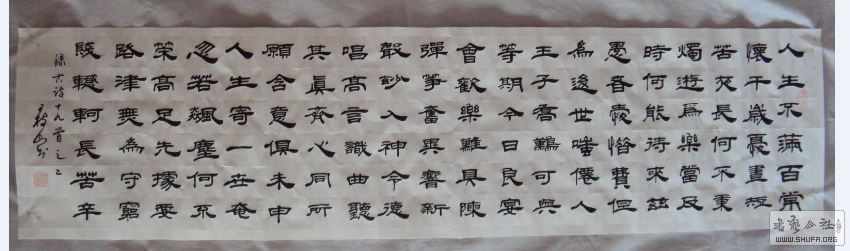 人生不滿百常
懷千歲憂晝短
苦夜長何不秉
燭遊為樂當及
時何能待來茲
愚者愛惜費但
為後世嗤僊人
王子喬難可與
等期今日良宴
會歡樂難具陳
彈箏奮響新
聲妙入神令德
唱高言識曲聽
其真齊心同所
願含意俱未申
人生寄一世奄
忽若飆塵何不
策高足先據要
路津無為守窮
賤轗軻長苦辛
錄古詩十九首之二
WWW.SHUFA.ORG